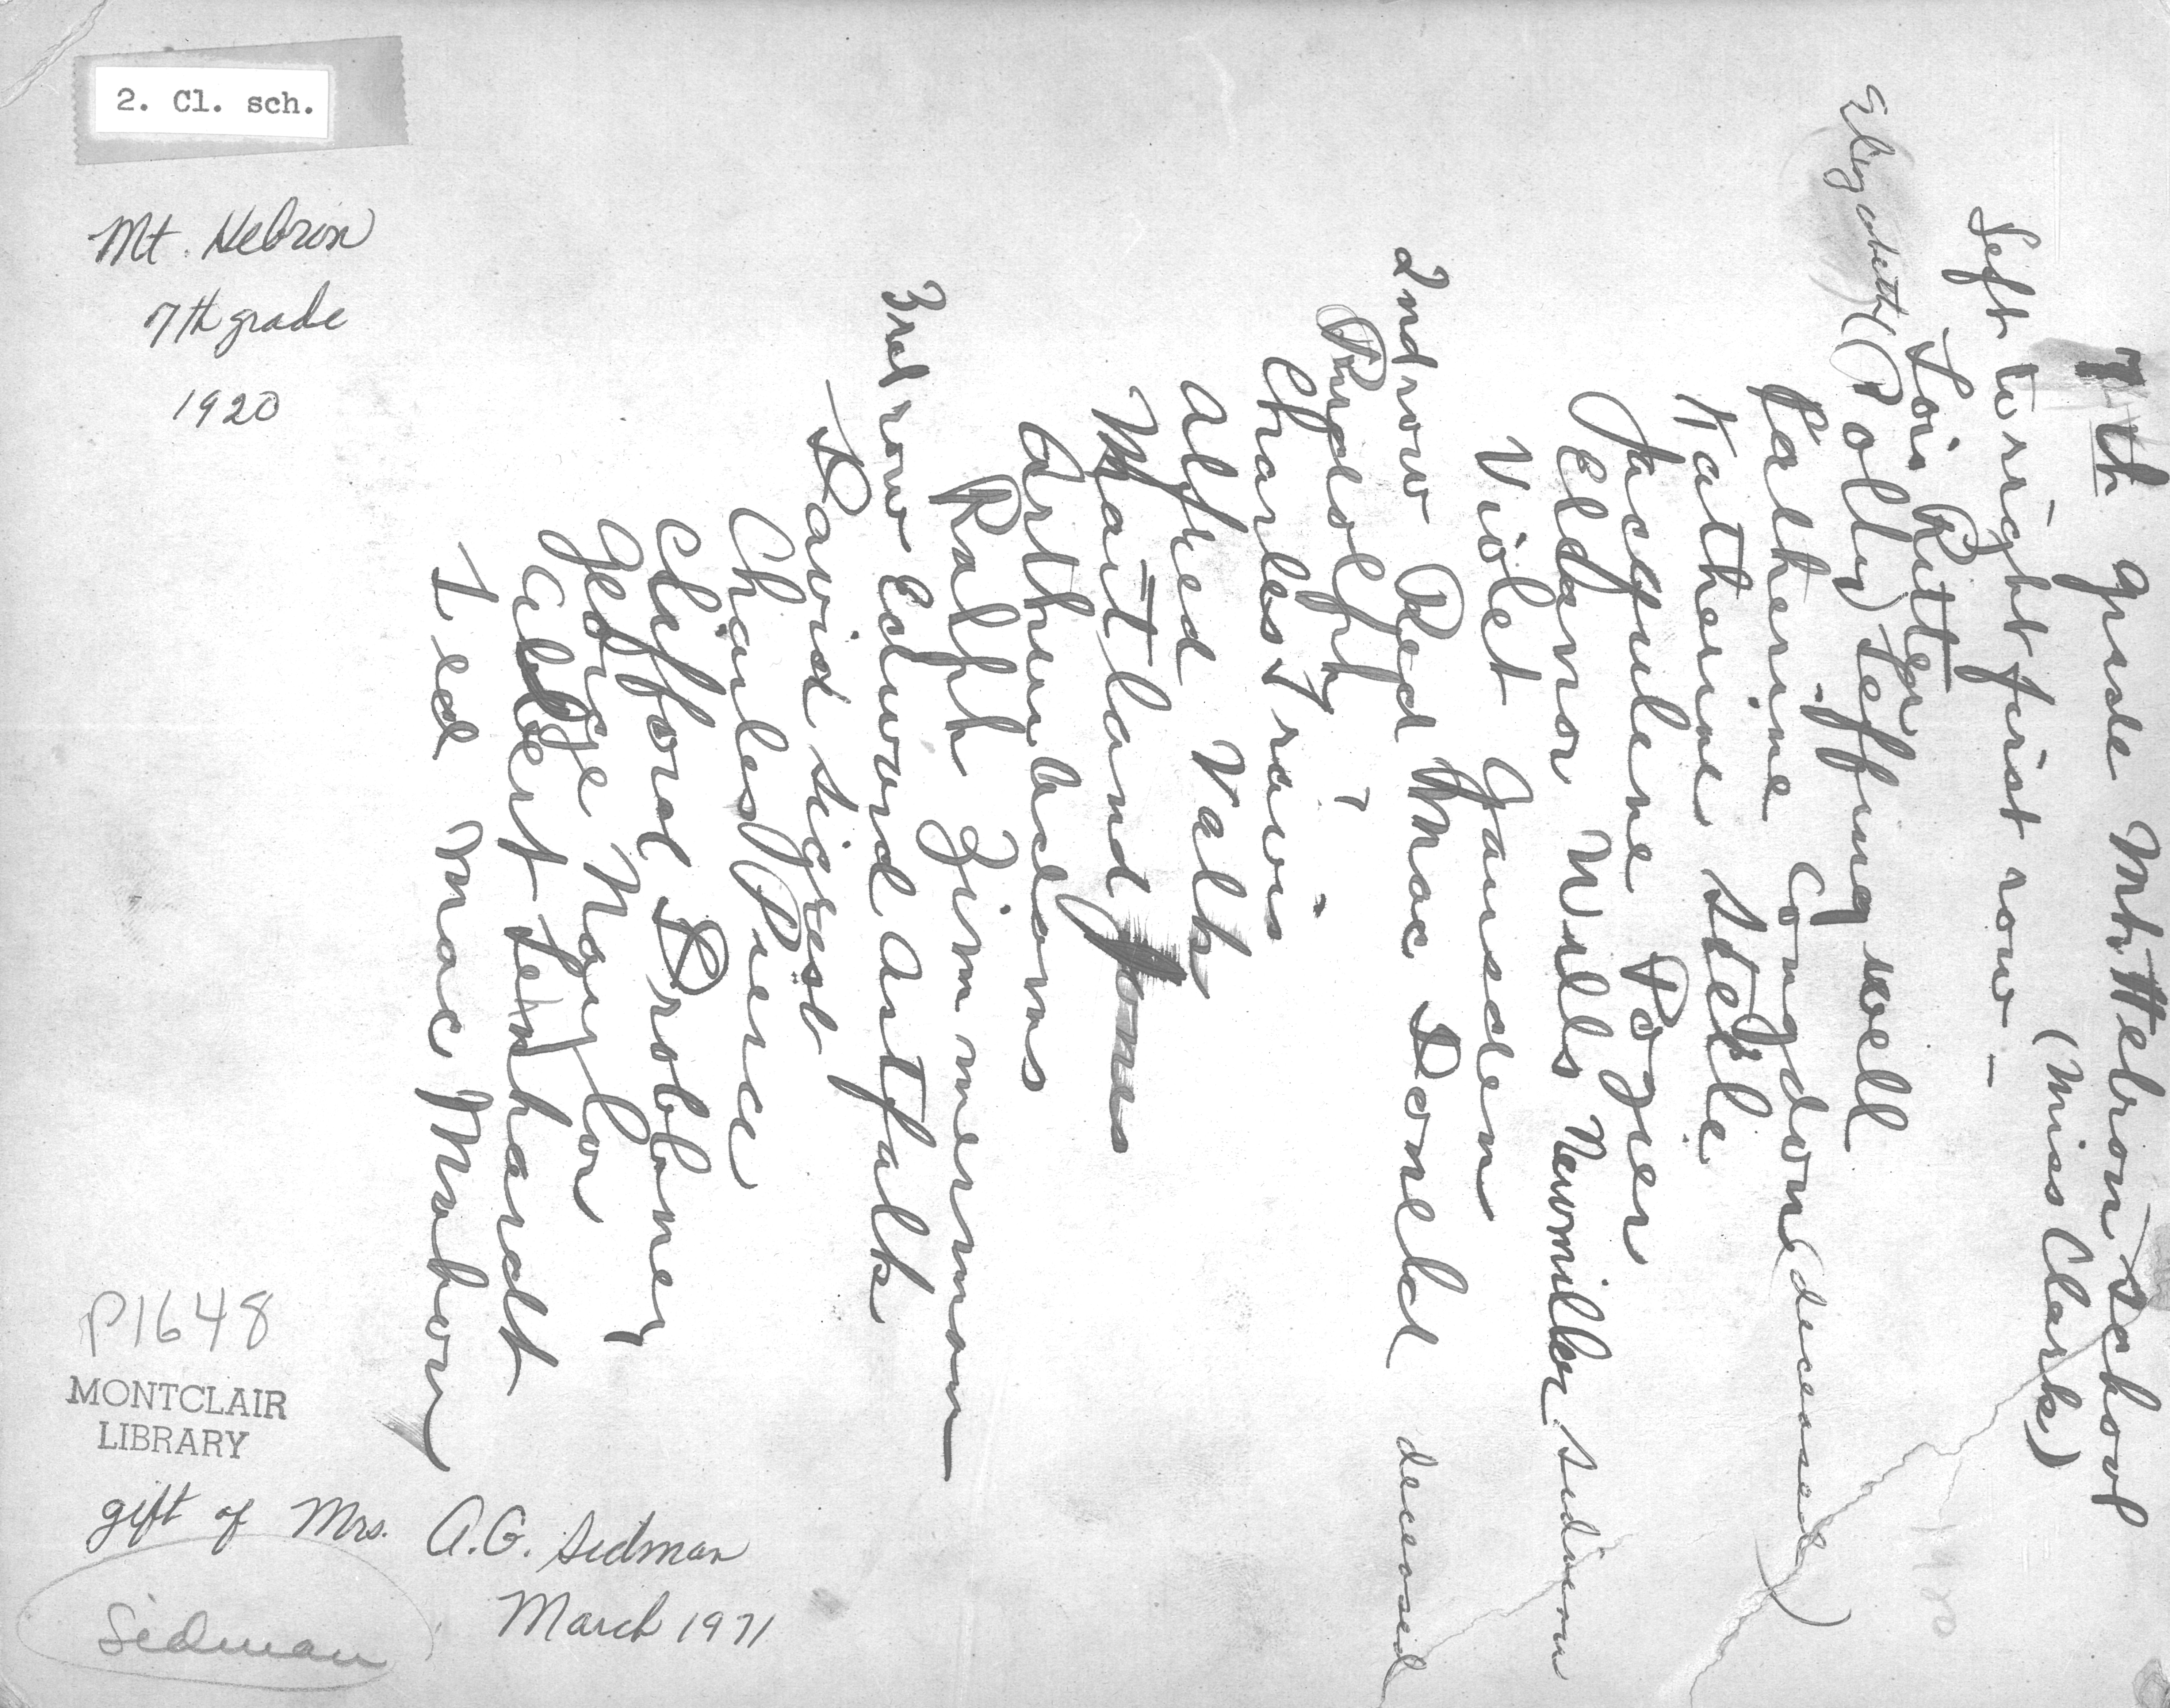 2. Cl. sch.
Mt. Hebron
7th grade
1920
7th grade Mt. Hebron School
(Miss Clark)
Left to right first row -
Lois Rutter
Elizabeth (Polly) Leffingwell
Partherine Congdon (deceased)
Katherine Steele
Jacqulene Pozier
Eleanor Wills Newmiller Sidman
Violet Gausden
2nd row Red Mac Donald deceased
Rudolph ?
Charles Travis
Alfred Valk
Maitland Jones
Arthur Adams
Ralph Zimmerman
3rd row Edward Autfalk
David Sigrest
Charles Pierce
Clifford Drobney
George Naylor
Albert Leinhardt
Ted MacMahon
P1648
MONTCLAIR
LIBRARY
gift of Mrs. A.G. Sidman
March 1971
Sidman